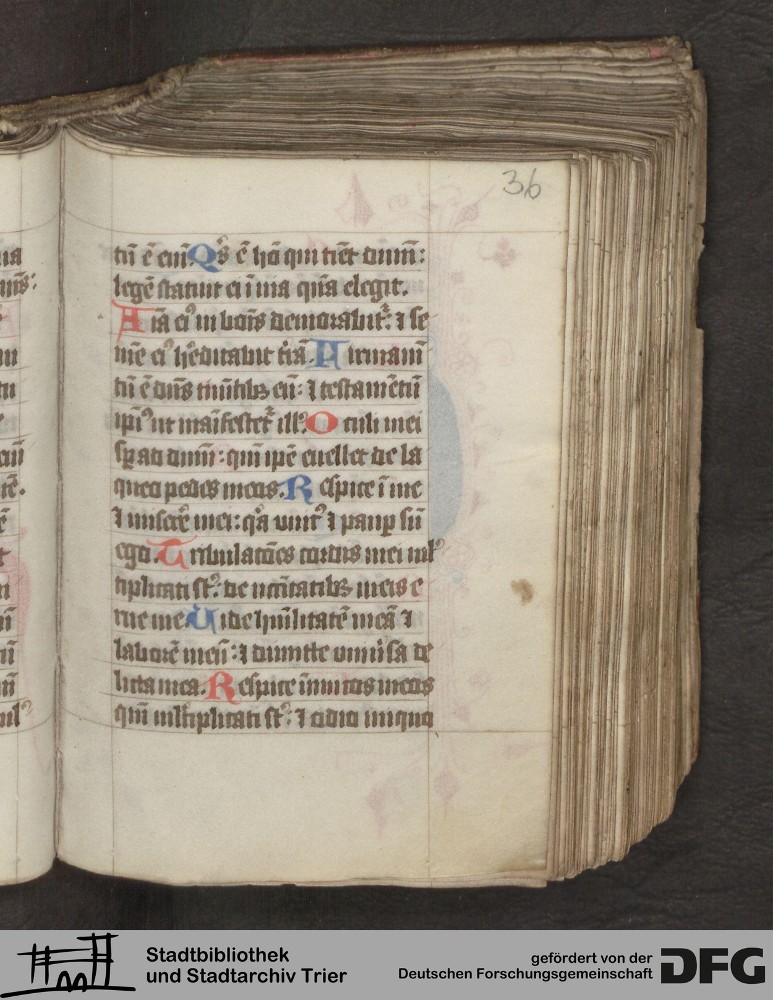 36
tū ē eni. Qͥs ē hō qui tiēt dnm̄:
legē statuit ei ī uia quā elegit.
Aīa eiꝰ in bonis demorabit᷑: ⁊ se
mē eiꝰ hēditabit t̄rā. Firmam̄
tū ē dn̄s timētibꝫ eū: ⁊ testamētū
ipīꝰ ut maīfestet᷑ ill᷒. Oculi mei
sꝑ ad dnm̄: qm̄ ipē euellet de la
queo pedes meos. Respice ī me
⁊ miserē mei: qͣ unicꝰ ⁊ paup sū
ego. Tribulatōes cordis mei mĺ
tiplicati st̄: de nc̄citatibꝫ meis e
rue me. Uide hūilitatē meā ⁊
laborē meū: ⁊ dimitte omīa de
licta mea. Respice inimicos meos
qm̄ mltiplicati st̄: ⁊ odio iniquo
Stadtbibliothek
und Stadtarchiv Trier
gefördert von der
Deutschen Forschungsgemeinschaft
DFG